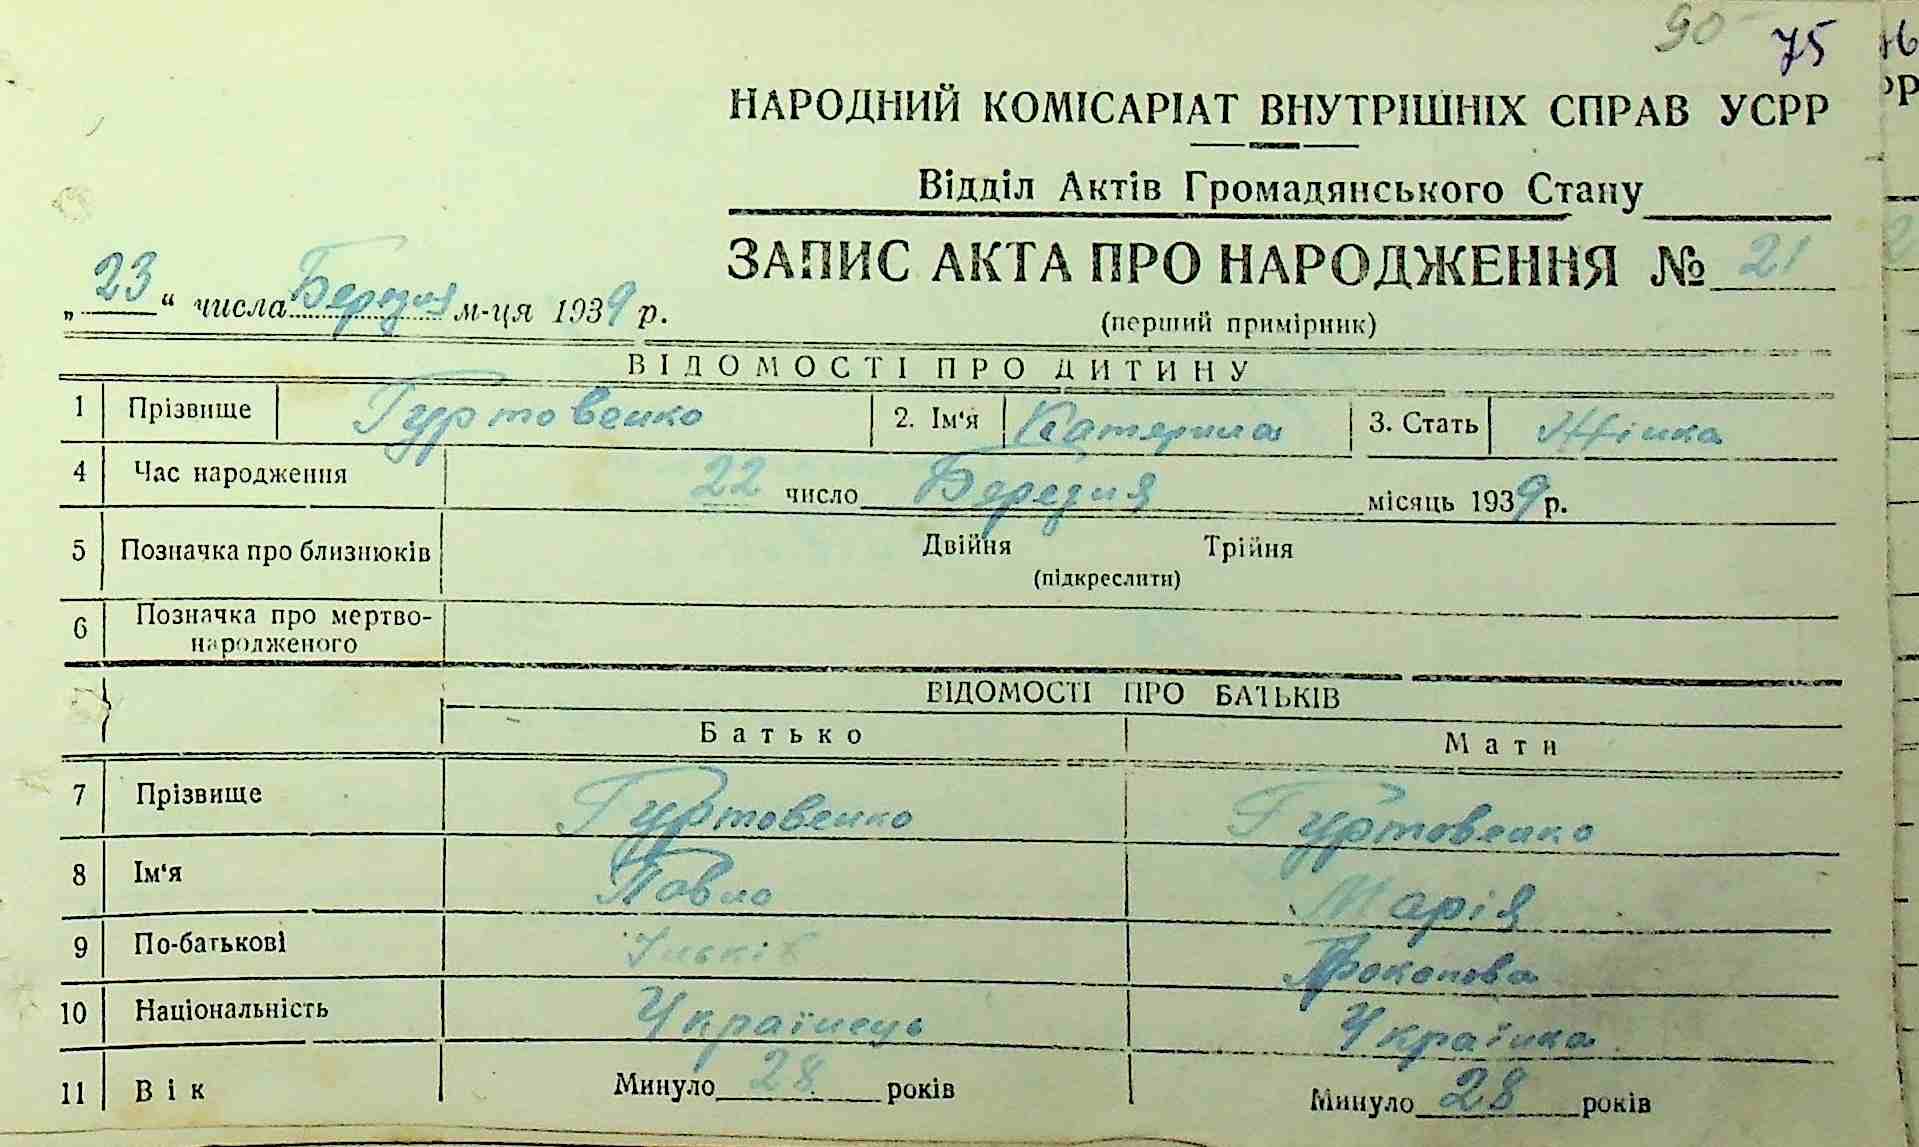 90 75
НАРОДНИЙ КОМІСАРІАТ ВНУТРІШНІХ СПРАВ УСРР
Відділ Актів Громадянського Стану
ЗАПИС АКТА ПРО НАРОДЖЕННЯ № 21
„23“ числа Березня м-ця 1939 р.
(перший примірник)
ВІДОМОСТІ ПРО ДИТИНУ
1 Прізвище Гуртовенко 2. Ім‘я Катерина 3. Стать Жінка
4 Час народження 22 число Березня місяць 1939 р.
5 Позначка про близнюків Двійня Трійня
(підкреслити)
6 Позначка про мертво-
народженого
ВІДОМОСТІ ПРО БАТЬКІВ
Батько Мати
7 Прізвище Гуртовенко Гуртовенко
8 Ім‘я Павло Марія
9 По-батькові Прокопова
10 Національність Українець Українка
11 Вік Минуло 28 років Минуло 28 років